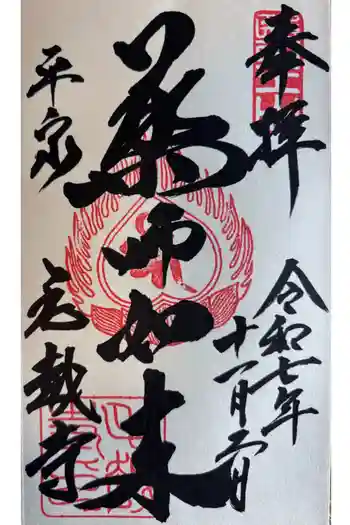 奉拝
令和七年
十一月二日
薬師如来
平泉
毛越寺